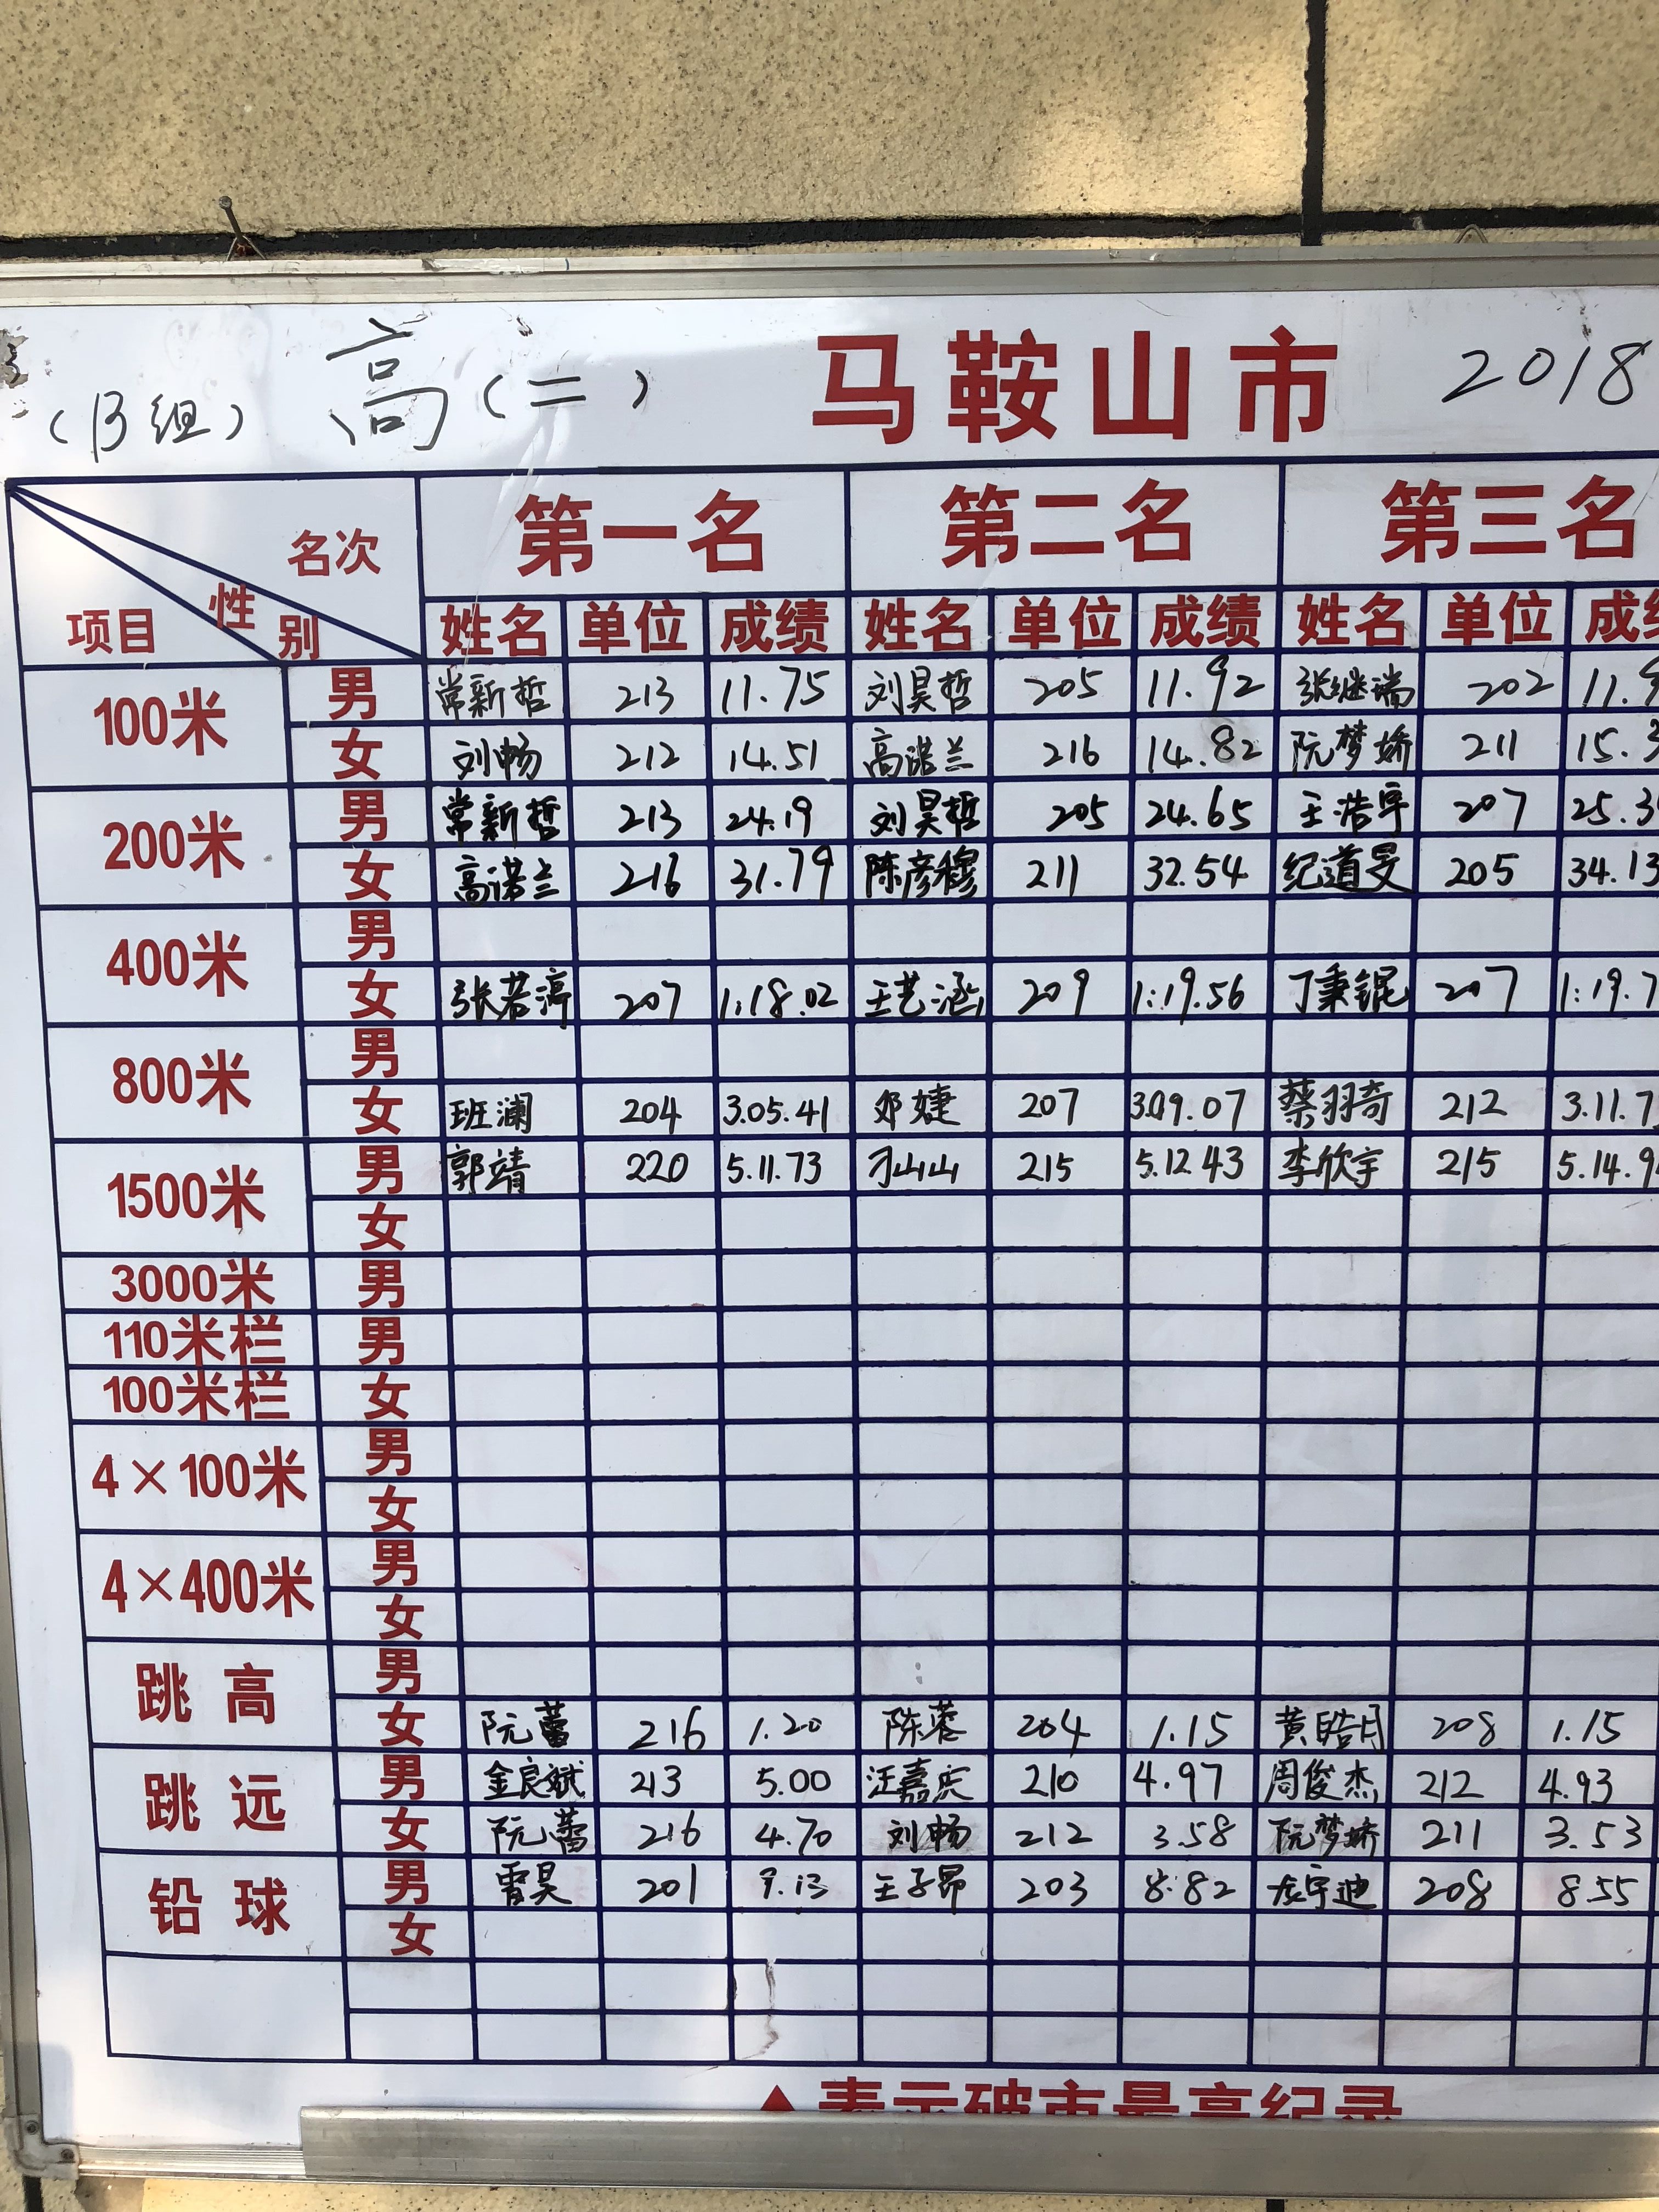 (B组) 高(二) 马鞍山市 2018
名次 第一名 第二名 第三名
项目 性别 姓名 单位 成绩 姓名 单位 成绩 姓名 单位 成绩
100米 男 常新哲 213 11.75 刘昊哲 205 11.92 张继瑞 202 11.9
女 刘畅 212 14.51 高诺兰 216 14.82 阮梦娇 211 15.3
200米 男 常新哲 213 24.19 刘昊哲 205 24.65 王浩宇 207 25.3
女 高诺兰 216 31.79 陈彦穆 211 32.54 纪道旻 205 34.13
400米 男
女 张若渟 207 1:18.02 王艺涵 209 1:19.56 丁秉锟 207 1:19.7
800米 男
女 班澜 204 3.05.41 邓婕 207 3.09.07 蔡羽奇 212 3.11.7
1500米 男 郭靖 220 5.11.73 刁山山 215 5.12.43 李欣宇 215 5.14.9
女
3000米 男
110米栏 男
100米栏 女
4×100米 男
女
4×400米 男
女
跳高 男
女 阮蕾 216 1.20 陈蓉 204 1.15 黄皓月 208 1.15
跳远 男 金良斌 213 5.00 汪嘉庆 210 4.97 周俊杰 212 4.93
女 阮蕾 216 4.70 刘畅 212 3.58 阮梦娇 211 3.53
铅球 男 雷昊 201 9.13 王子昂 203 8.82 宇迪 208 8.55
女
▲表示破市最高纪录